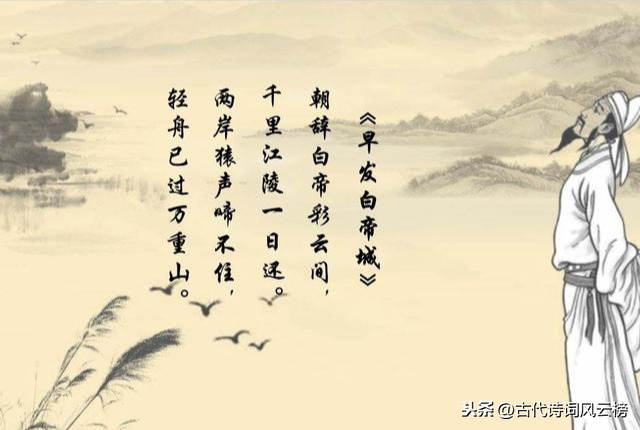 《早发白帝城》
朝辞白帝彩云间，
千里江陵一日还。
两岸猿声啼不住，
轻舟已过万重山。
头条 @古代诗词风云榜